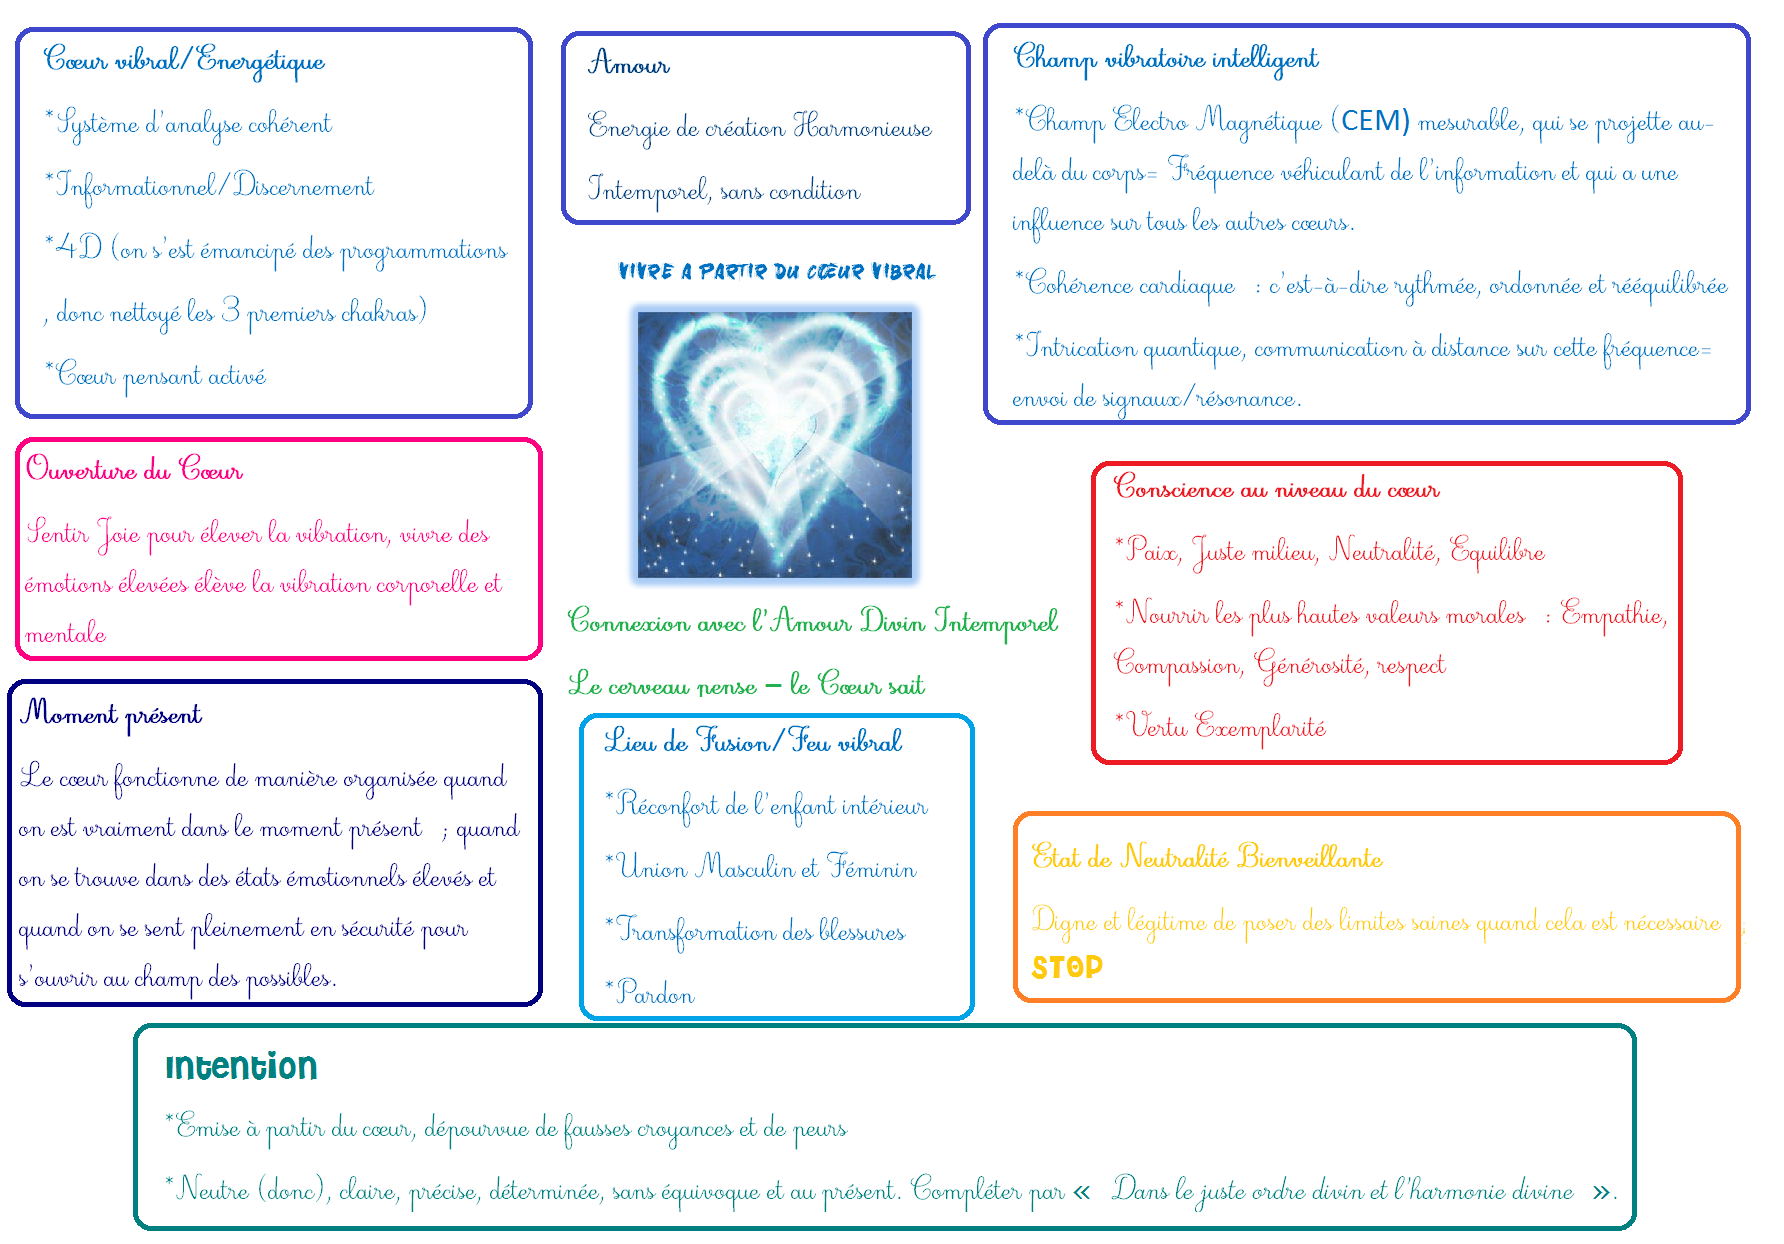 Cœur vibral/Energétique
*Système d'analyse cohérent
*Informationnel/Discernement
*4D (on s'est émancipé des programmations
, donc nettoyé les 3 premiers chakras)
*Cœur pensant activé
Amour
Energie de création Harmonieuse
Intemporel, sans condition
Champ vibratoire intelligent
*Champ Electro Magnétique (CEM) mesurable, qui se projette au-
delà du corps= Fréquence véhiculant de l'information et qui a une
influence sur tous les autres cœurs.
*Cohérence cardiaque : c'est-à-dire rythmée, ordonnée et rééquilibrée
*Intrication quantique, communication à distance sur cette fréquence=
envoi de signaux/résonance.
VIVRE A PARTIR DU CŒUR VIBRAL
Ouverture du Cœur
Sentir Joie pour élever la vibration, vivre des
émotions élevées élève la vibration corporelle et
mentale
Conscience au niveau du cœur
*Paix, Juste milieu, Neutralité, Equilibre
*Nourrir les plus hautes valeurs morales : Empathie,
Compassion, Générosité, respect
*Vertu Exemplarité
Connexion avec l'Amour Divin Intemporel
Le cerveau pense – le Cœur sait
Moment présent
Le cœur fonctionne de manière organisée quand
on est vraiment dans le moment présent ; quand
on se trouve dans des états émotionnels élevés et
quand on se sent pleinement en sécurité pour
s'ouvrir au champ des possibles.
Lieu de Fusion/Feu vibral
*Réconfort de l'enfant intérieur
*Union Masculin et Féminin
*Transformation des blessures
*Pardon
Etat de Neutralité Bienveillante
Digne et légitime de poser des limites saines quand cela est nécessaire ;
STOP
Intention
*Emise à partir du cœur, dépourvue de fausses croyances et de peurs
*Neutre (donc), claire, précise, déterminée, sans équivoque et au présent. Compléter par « Dans le juste ordre divin et l'harmonie divine ».